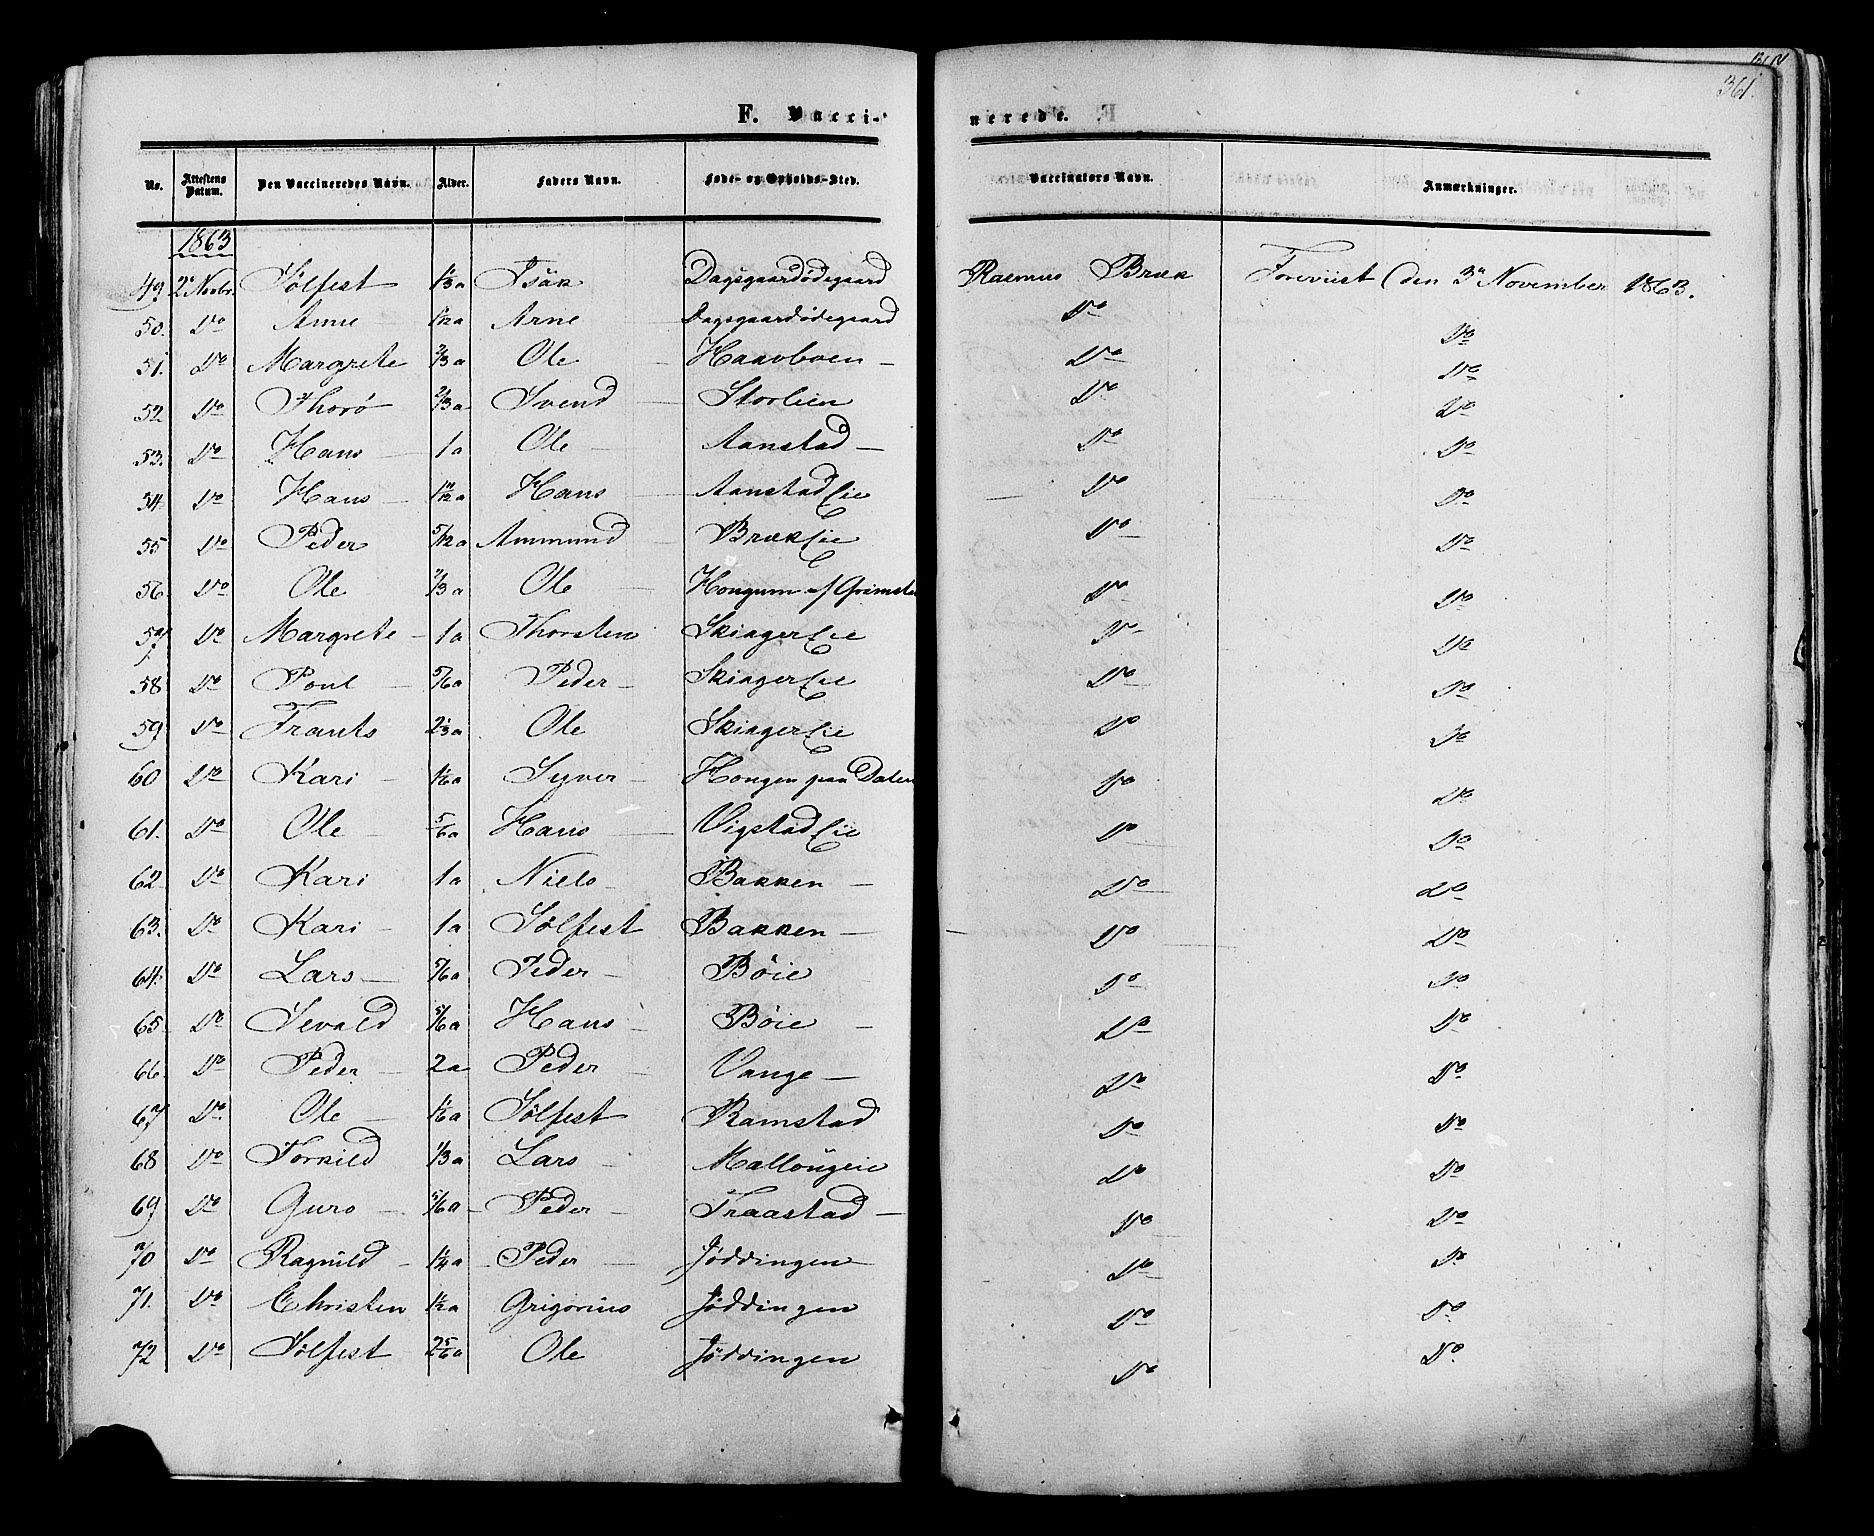 361.
F. Vacci-
nerede.
No. Attestens Datum. Den Vaccineredes Navn. Alder. Faders Navn. Føde- og Opholds-Sted. Vaccinators Navn. Anmærkninger.
1863
49 2 Novbr. Sølfest 1/3 a Isak Dagsgaardødegaard Rasmus Bræk Foreviist den 3 November 1863.
50. Do Anne Arne Dagsgaardødegaard Do Do
51. Do Margrete 2/3 a Ole Haavboen Do Do
52 Do Thorø 2/3 a Svend Storlien Do Do
53. Do Hans 1 a Ole Aanstad Do Do
54 Do Hans Hans Aanstad Eie Do Do
55 Do Peder 5/12 a Ammund Bræk Eie Do Do
56 Do Ole 2/3 a Ole Hongum af Grimsta Do Do
57 Do Margrete 1 a Thorsten Skinger Eie Do Do
58 Do Poul 5/6 a Peder Skinger Eie Do Do
59 Do Frants 2 1/3 a Ole Skinger Eie Do Do
60 Do Kari 1/6 a Syver Hongen paa Dalen Do Do
61. Do Ole 5/6 a Hans Vigstad Eie Do Do
62 Do Kari 1 a Niels Bakken Do Do
63. Do Kari 1 a Sølfest Bakken Do Do
64. Do Lars 5/6 a Peder Bøie Do Do
65 Do Sevald 5/6 a Hans Bøie Do Do
66 Do Peder 2 a Peder Vange Do Do
67 Do Ole 1/6 a Sølfest Ramstad Do Do
68 Do Torkild 1/3 a Lars Do Do
69 Do Guro 5/6 a Peder Traastad Do Do
70 Do Ragnild 1/4 a Peder Jøddingen Do Do
71. Do Christen 1/2 a Grigorius Jøddingen Do Do
72 Do Sølfest 2 5/6 a Ole Jøddingen Do Do